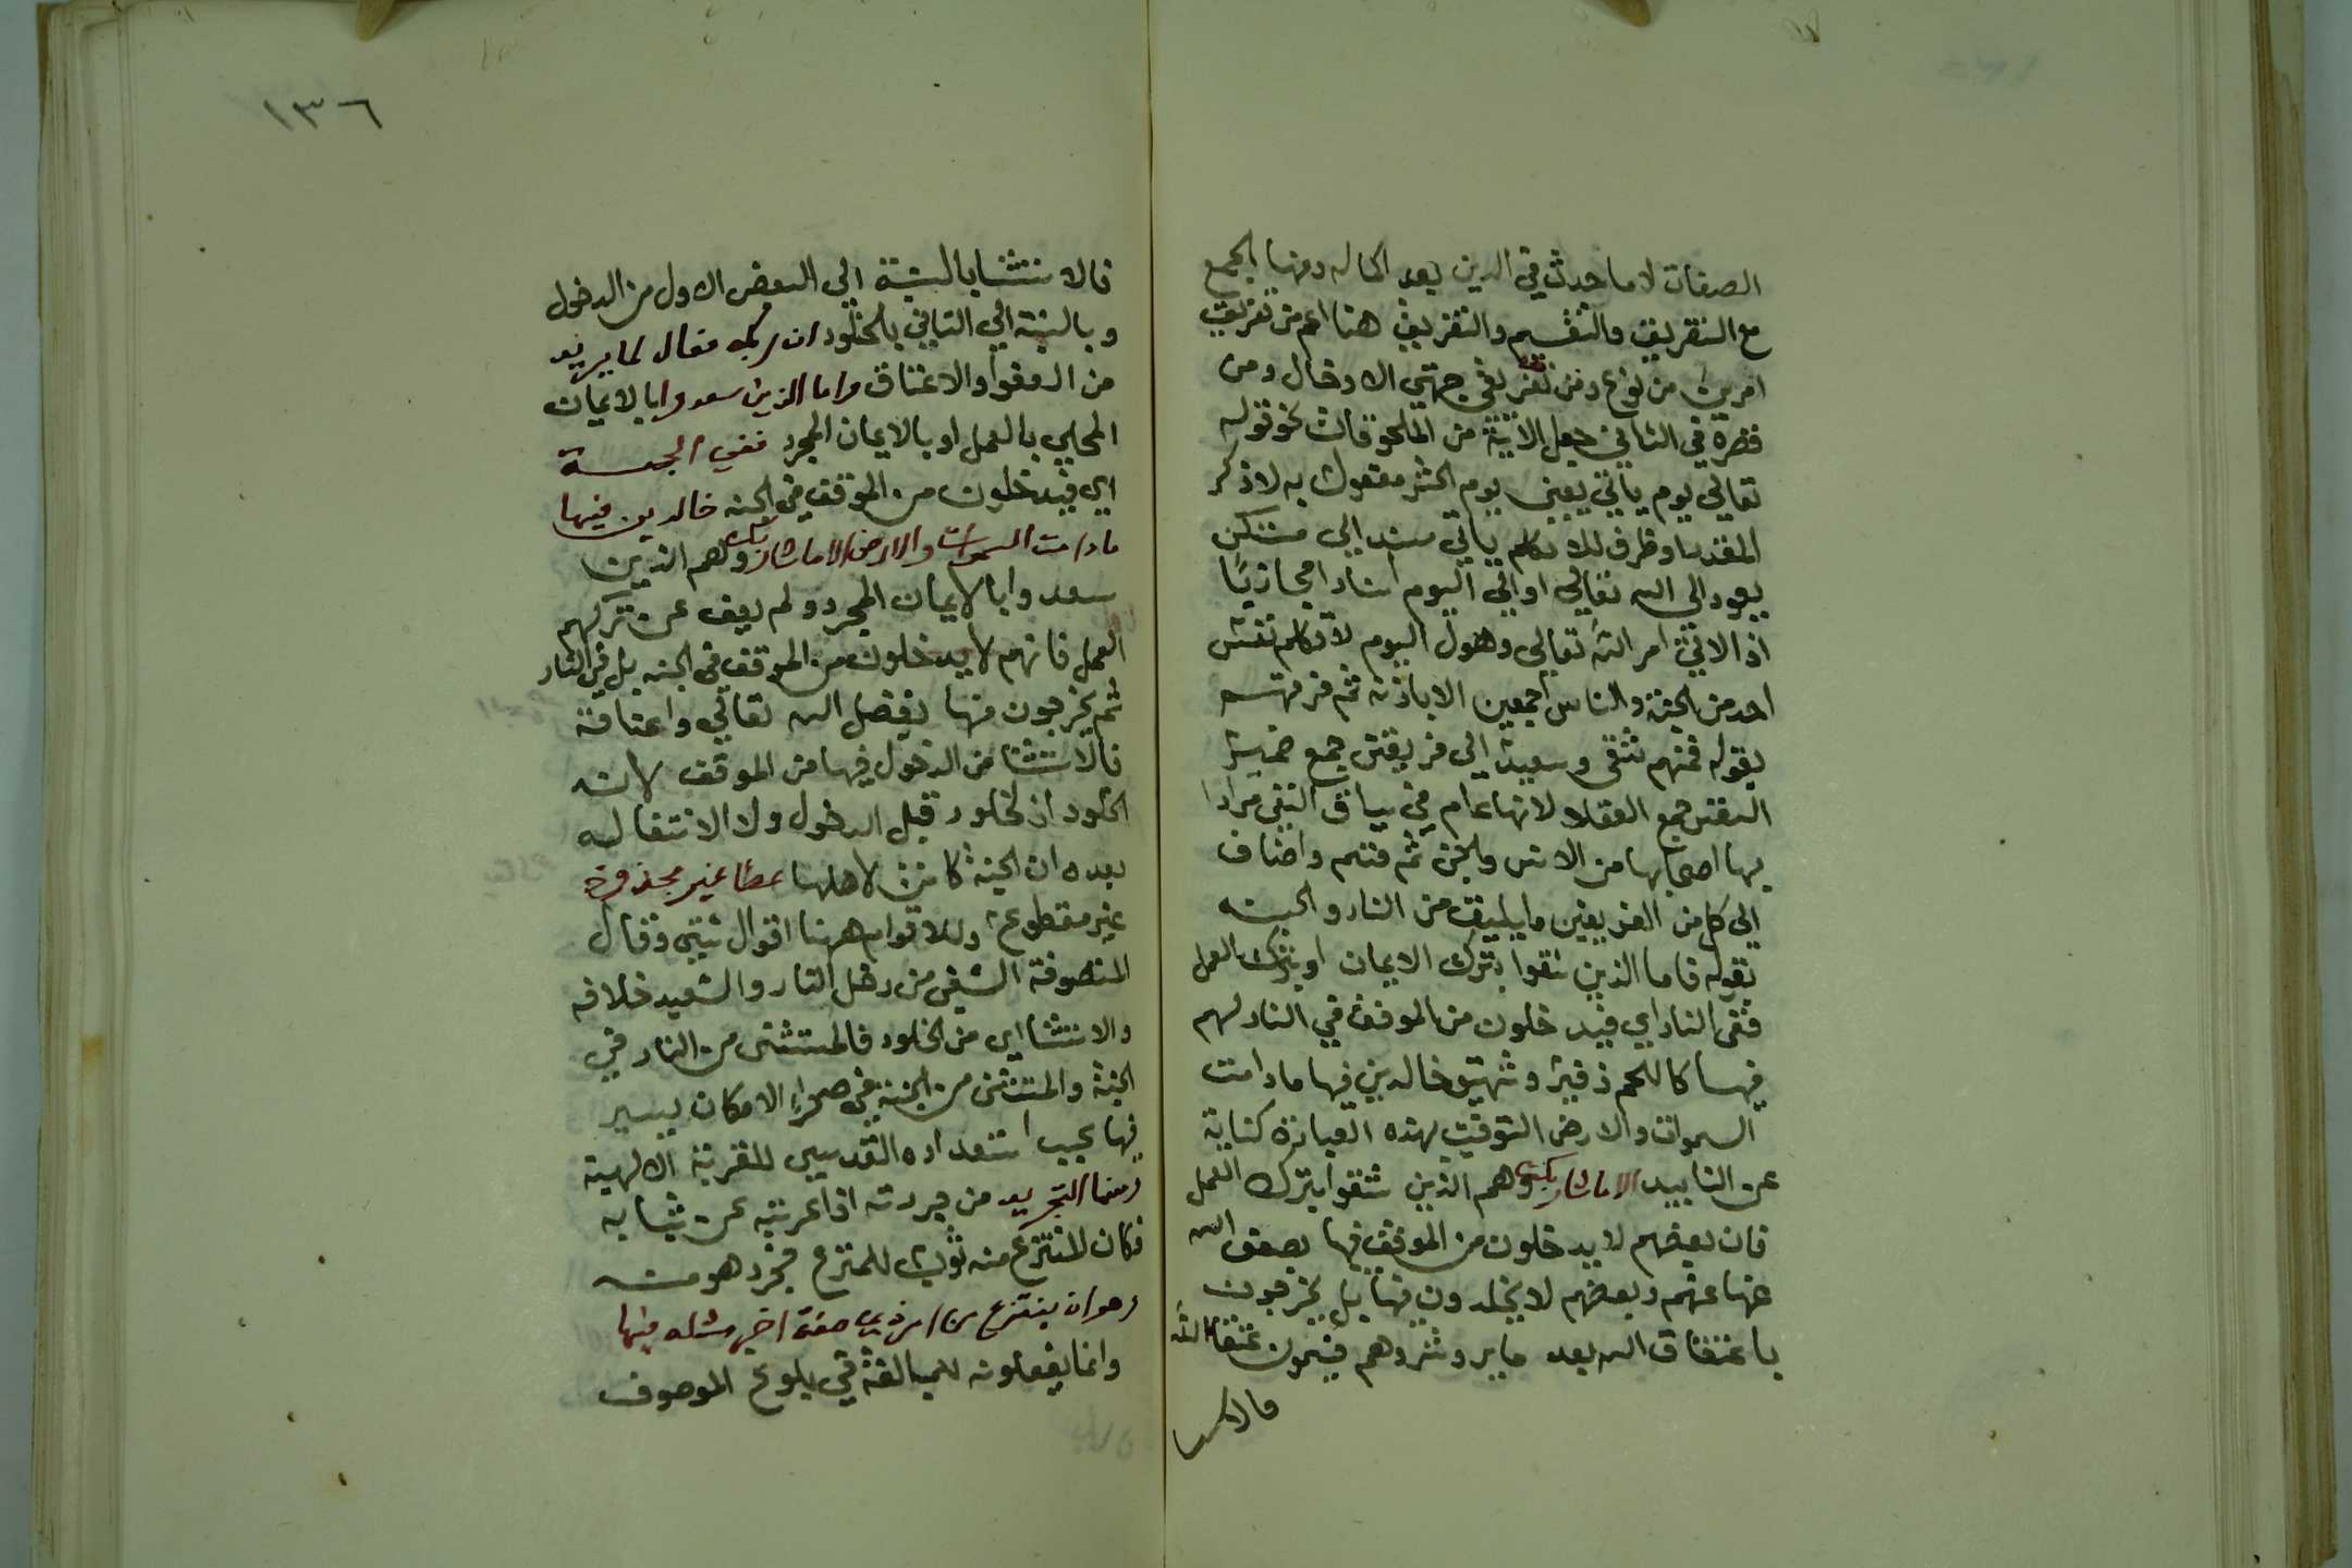 الصفات لا ما حدث في الدين بعد اكماله ومنها الجمع
مع التفريق والتقسيم والتفريق هنا اعم من تفريق
امرين من نوع ومن تفريق جهتي الادخال ومن
في الثاني جعل الآتية من الملحوقات نحو قوله
تعالي يوم ياتي يعني يوم الحشر مفعول به لاذكر
المقدر او ظرف للاتكلم ياتي مسند الى مستكن
يعود الى الله تعالى او الى اليوم اسنادا مجازيا
اذ الاتي امر الله تعالى وهول اليوم لا تكلم نفس
احد من الجنة والناس اجمعين الا باذنه ثم فرقهم
بقوله فمنهم شقى وسعيد الى فريقين جمع ضمير
النفس جمع العقلا لانها عام في سياق النفى مرادا
بها اصحابها من الانس والجن ثم قسم واضاف
الى كل من الفريقين ما يليق من النار والجنه
بقوله فاما الذين شقوا بترك الايمان او بترك العمل
ففى النار اي فيدخلون من الموقف في النار لهم
فيها كاللحم زفير وشهيق خالدين فيها ما دامت
السموات والارض التوقيت بهذه العبارة كناية
عن التابيد الا ما شاء ربك وهم الذين شقوا بترك العمل
فان بعضهم لا يدخلون من الموقف فيها بعفو الله
عنها عنهم وبعضهم لا يخلدون فيها بل يخرجون
باعتاق الله بعد ما يروثروهم فيسمون عتقاء الله
فالاستثنا
١٣٦
فالاستثنا بالنسبة الى البعض الاول من الدخول
وبالنسبة الي الثاني بالخلود ان ربك فعال لما يريد
من العفو والاعتاق واما الذين سعدوا بالايمان
المحلي بالعمل او بالايمان المجرد ففي الجنة
اي فيدخلون من الموقف في الجنه خالدين فيها
ما دامت السموات والارض الا ما شاء ربك وهم الذين
سعدوا بالايمان المجرد ولم يعف عن تركهم
العمل فانهم لا يدخلون من الموقف في الجنه بل في النار
ثم يخرجون منها بفضل الله تعالي واعتاقه
فالاستثنا من الدخول فيها من الموقف لا من
الخلود اذ لا خلود قبل الدخول ولا انتقال
بعده ان الجنة كانت لاهلها عطا غير مجذوذ
غير مقطوع وللاقوام ههنا اقوال شتى وقال
المتصوفة الشقى من دخل النار والسعيد خلافه
والاستثنا اي من الخلود فالمستثنى من النار في
الجنة والمستثنى من الجنة في صحراء الامكان يسير
فيها بحسب استعداده القدسي للقربة الالهية
ومنها التجريد من جردته اذا عريته عن ثيابه
فكان للمنتزع منه ثوب للمنتزع فجرد هو منه
وهو ان ينتزع من امر ذي صفة اخر مثله فيها
وانما يفعلونه للمبالغة في بلوغ الموصوف